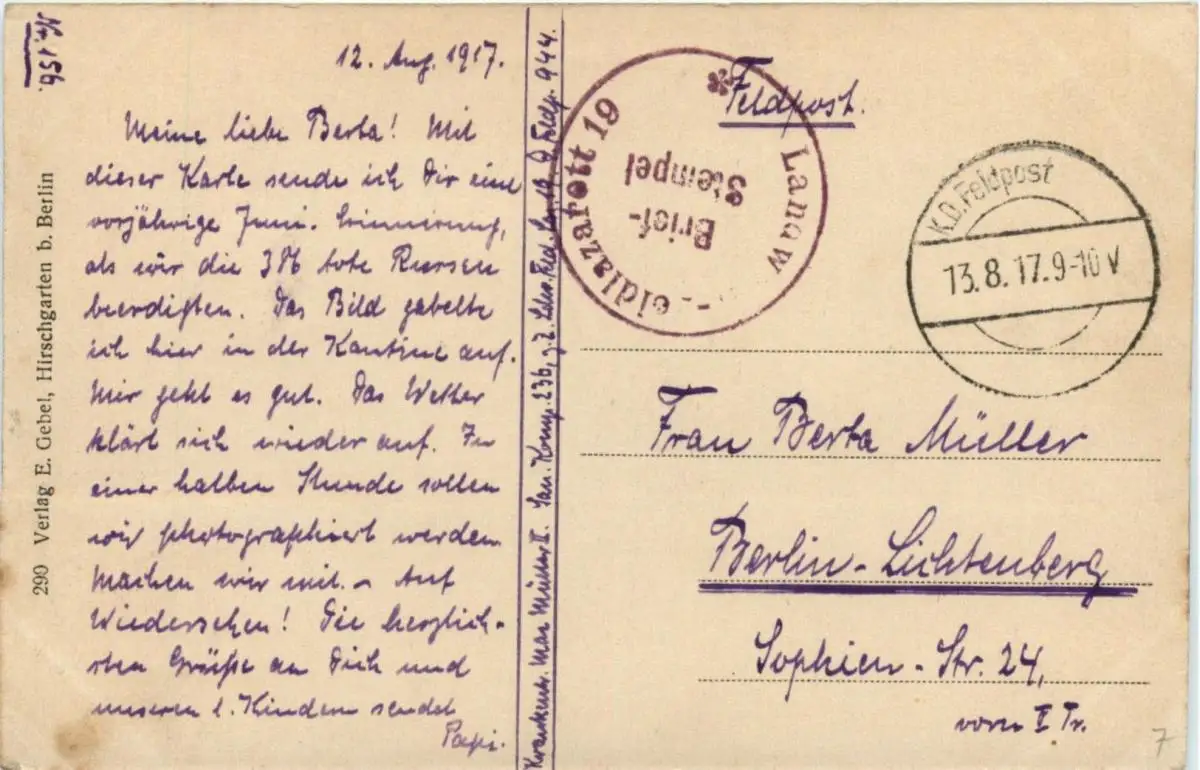 Nr. 156.
12. Aug. 1917.
Meine liebe Berta! Mit
dieser Karte sende ich Dir eine
vorjährige Juni-Erinnerung,
als wir die 386 tote Russen
beerdigten. Das Bild gabelte
ich hier in der Kantine auf.
Mir geht es gut. Das Wetter
klärt sich wieder auf. In
einer halben Stunde sollen
wir photographiert werden
machen wir mit. – Auf
Wiedersehen! Die herzlich-
sten Grüße an Dich und
unseren l. Kindern sendet
Papi.
290 Verlag E. Gebel, Hirschgarten b. Berlin
Krankenw. Max Müller II. San. Komp. 236, z. Z. Feldp. 944.
Feldpost.
eldlazarett 19 Lanaw
Brief-
Stempel
K.D. Feldpost
13.8.17.9-10V
Frau Berta Müller
Berlin-Lichtenberg
Sophien-Str. 24,
vorn I Tr.
7